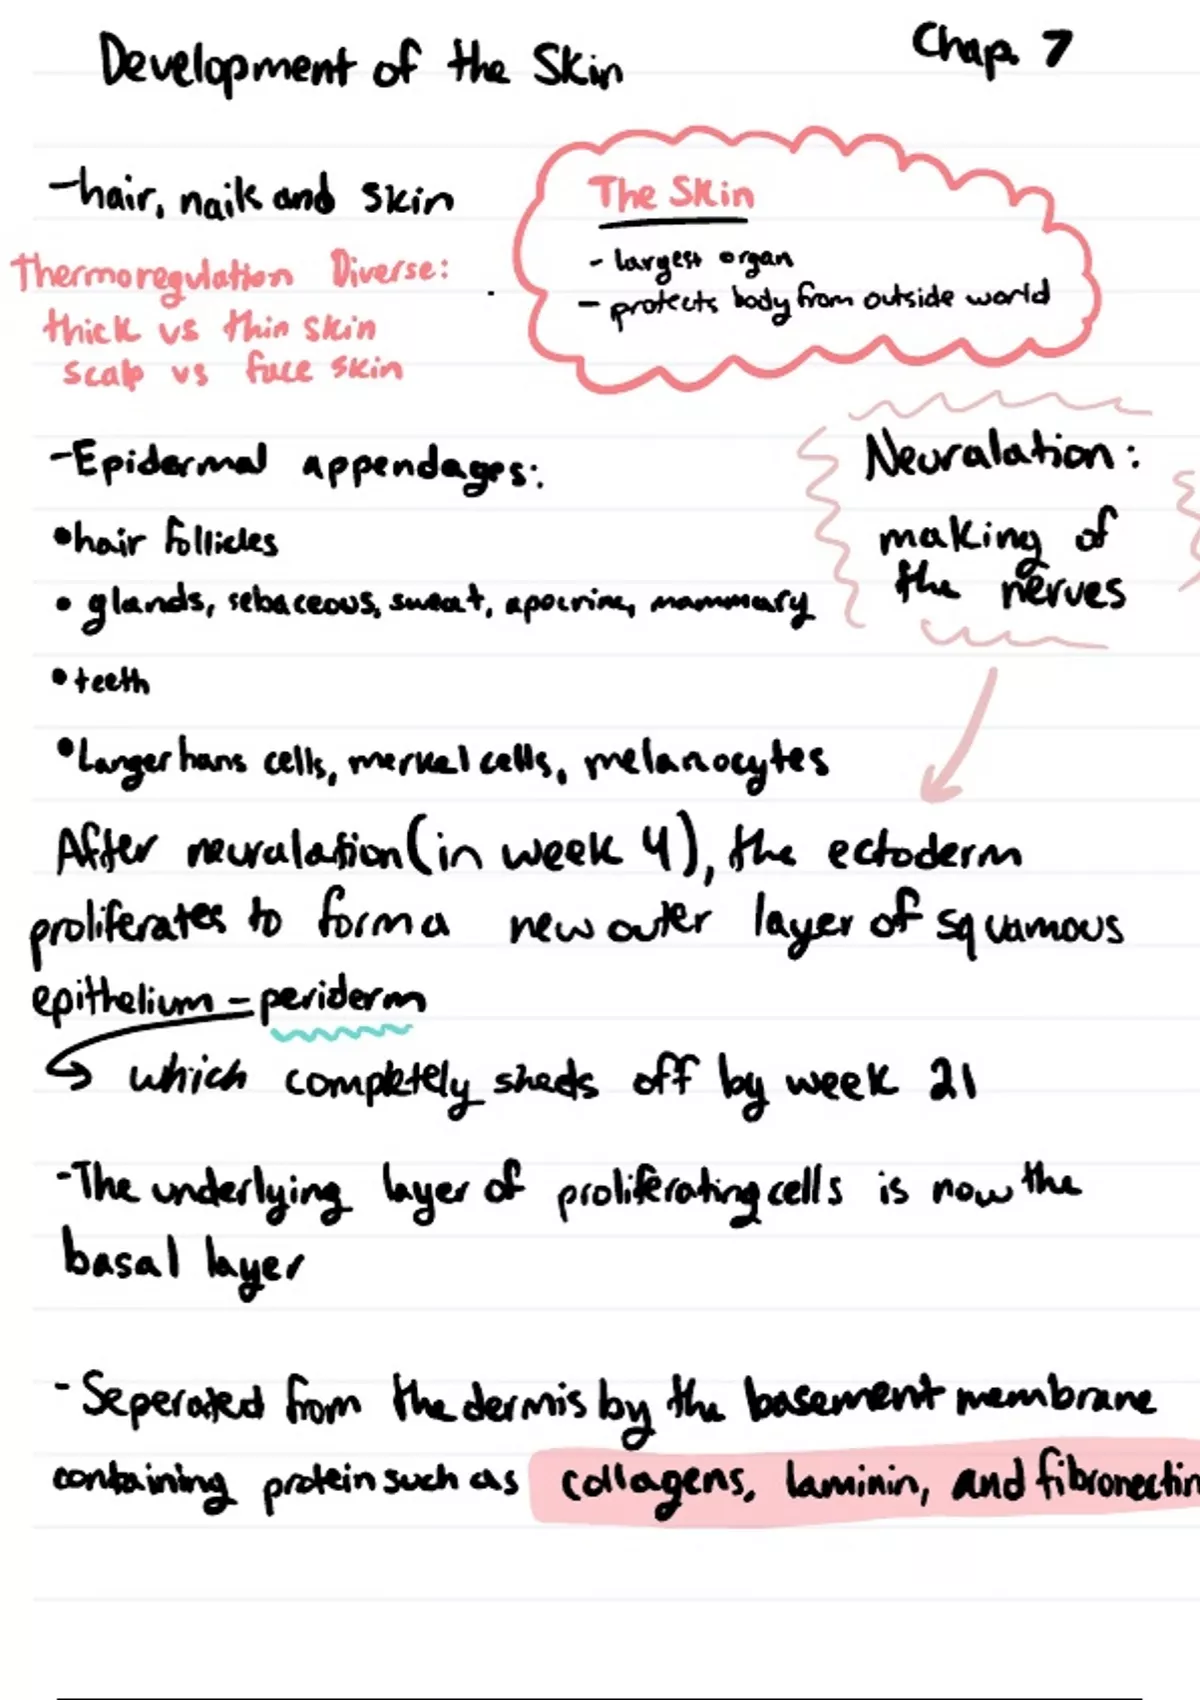 Development of the Skin
Chap. 7
-hair, nails and skin
Thermoregulation Diverse:
thick vs thin skin
scalp vs face skin
The Skin
- largest organ
- protects body from outside world
-Epidermal appendages:
•hair follicles
• glands, sebaceous, sweat, apocrine, mammary
•teeth
•Langerhans cells, merkel cells, melanocytes
Neuralation:
making of
the nerves
After neuralation (in week 4), the ectoderm
proliferates to form a new outer layer of squamous
epithelium - periderm
→ which completely sheds off by week 21
-The underlying layer of proliferating cells is now the
basal layer
- Seperated from the dermis by the basement membrane
containing protein such as collagens, laminin, and fibronectin